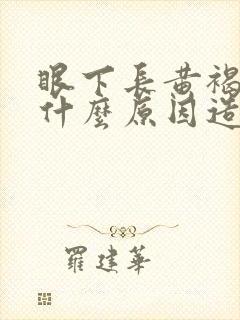 眼下長黃褐
什麼原因造
羅建華